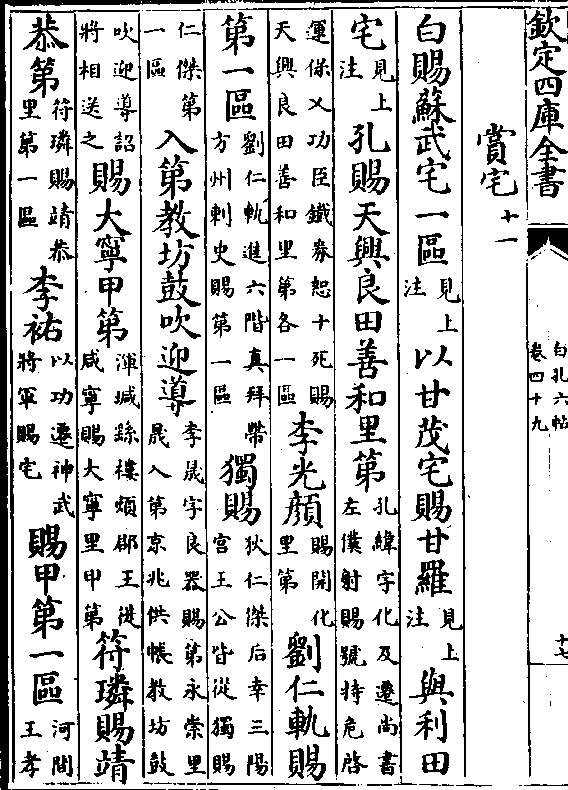 欽定四庫全書
白孔六帖
卷四十九
十七
賞宅十一
白賜蘇武宅一區見上注以甘茂宅賜甘羅見上注與利田
宅見上注孔賜天興良田善和里第孔緯字化及遷尚書左僕射賜號持危啓
運保乂功臣鐵券恕十死賜天興良田善和里第各一區李光顔賜開化里第劉仁軌賜
第一區劉仁軌進六階真拜帶方州刺史賜第一區獨賜狄仁傑后幸三陽宮王公皆從獨賜
仁傑第一區入第教坊鼓吹迎導李晟字良器賜第永崇里晟入第京兆供帳教坊鼓
吹迎導詔將相送之賜大寧甲第渾瑊繇樓煩郡王徙咸寧賜大寧里甲第符璘賜靖
恭第符璘賜靖恭里第一區李祐以功遷神武將軍賜宅賜甲第一區河間王孝